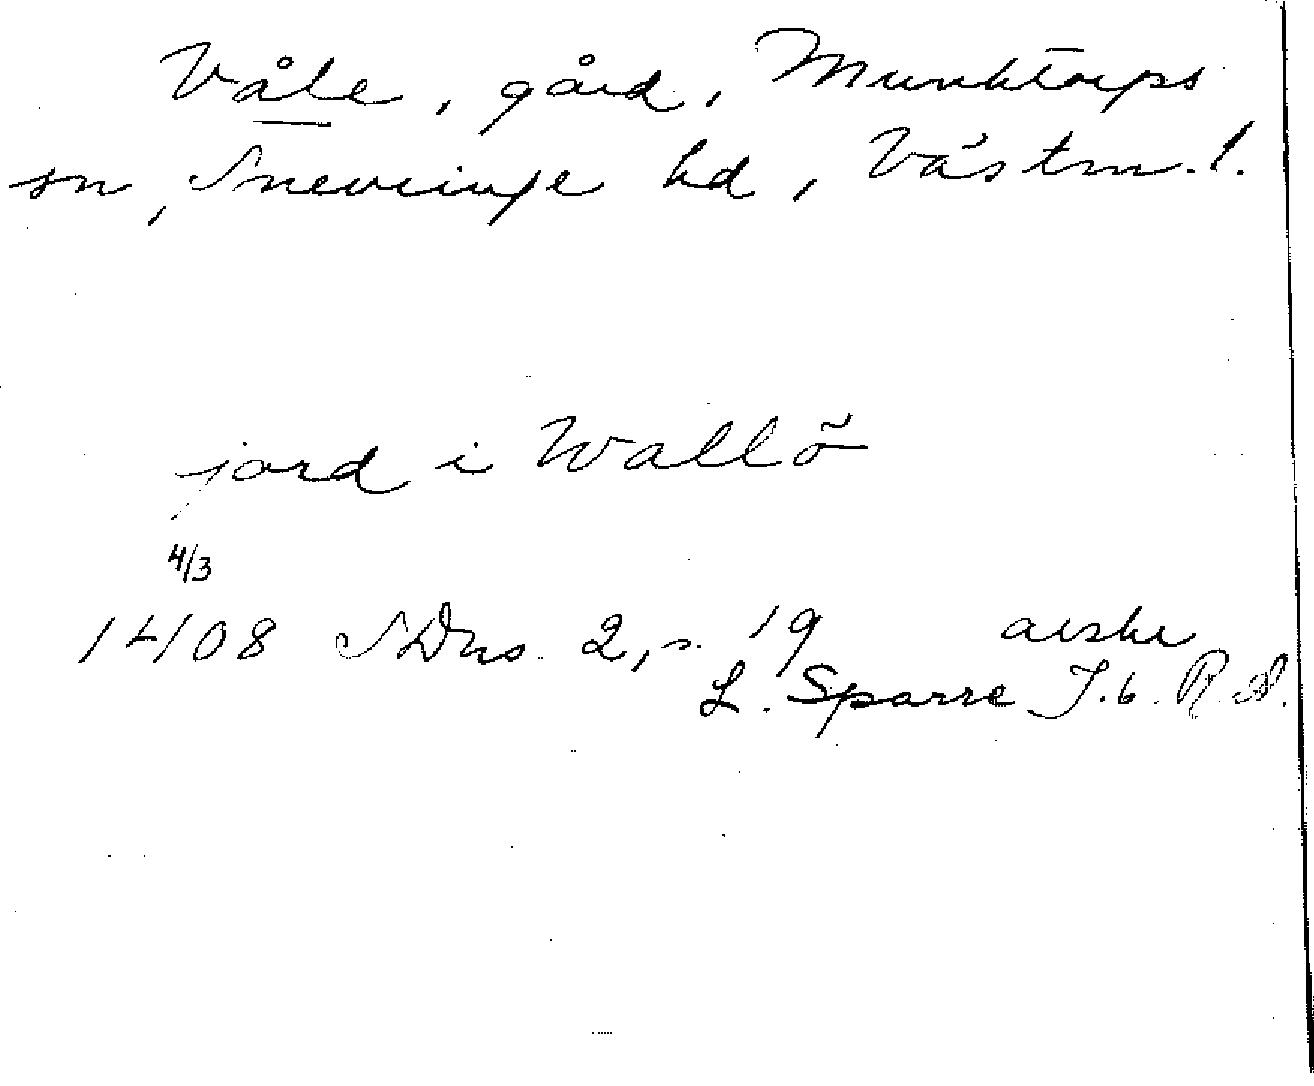 Våle, gård, Munktorps
sn, Snevringe hd, Västm.l.
jord i Wallö
4/3
1408 SDns 2, s. 19 avskr
L. Sparre T.b. R.A.